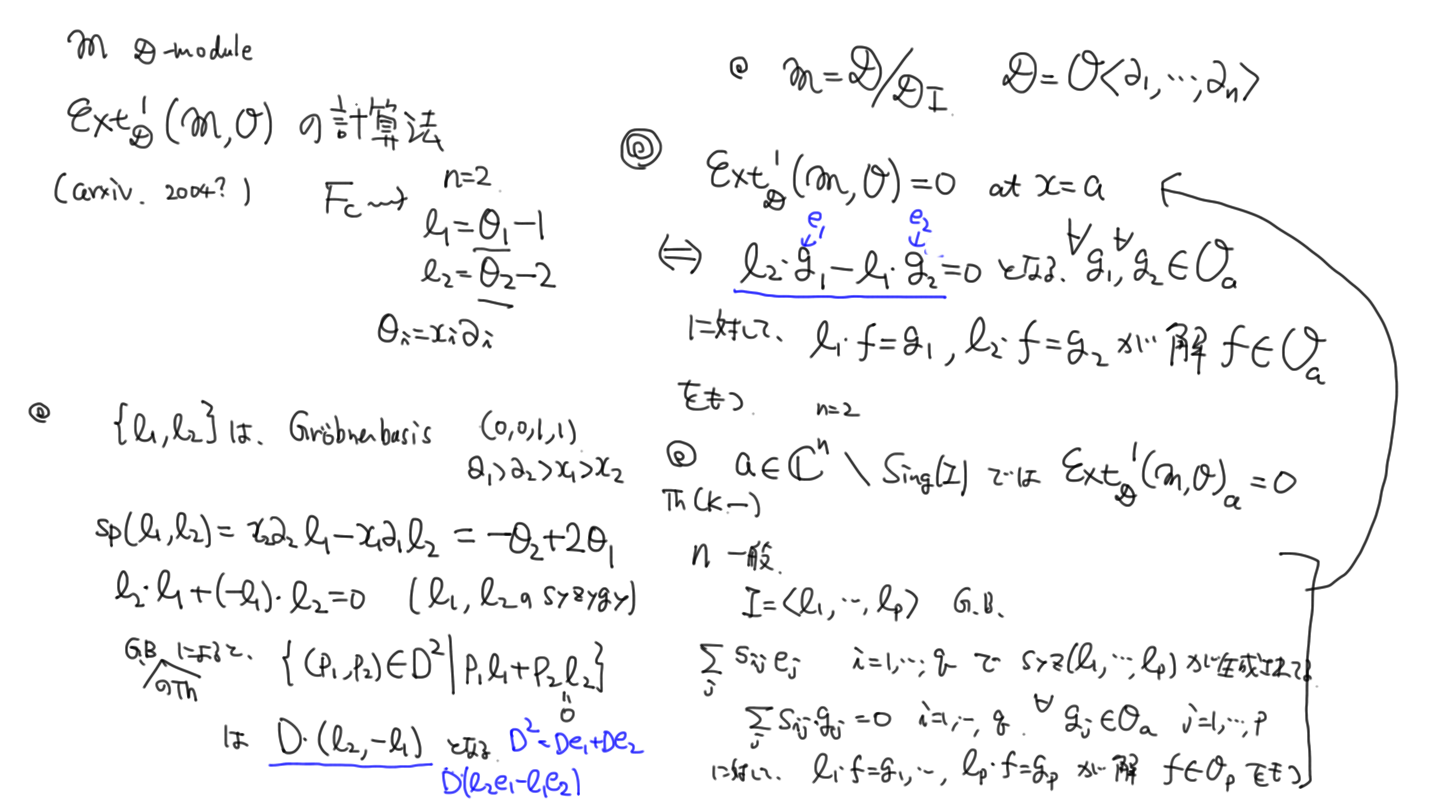 𝔐 𝒟-module
Ext¹_𝒟(𝔐, 𝒪) の計算法
(arxiv. 2004?)
F_C ⇝
n=2
l₁=θ₁-1
l₂=θ₂-2
θᵢ=xᵢ∂ᵢ
{l₁, l₂} は、Gröbner basis (0,0,1,1)
∂₁>∂₂>x₁>x₂
sp(l₁, l₂) = x₂∂₂l₁-x₁∂₁l₂ = -θ₂+2θ₁
l₂·l₁+(-l₁)·l₂=0 (l₁, l₂の syzygy)
G.B. のTh によると、{(P₁, P₂)∈D² | P₁l₁+P₂l₂=0}
は D·(l₂, -l₁) となる
D²=De₁+De₂
D(l₂e₁-l₁e₂)
𝔐=𝒟/𝒟I 𝒟=𝒪<∂₁, ⋯, ∂ₙ>
Ext¹_𝒟(𝔐, 𝒪)=0 at x=a
e₁ e₂
⇔ l₂·g₁-l₁·g₂=0 となる ∀g₁, ∀g₂∈𝒪_a
に対して、l₁·f=g₁, l₂·f=g₂ が 解 f∈𝒪_a
をもつ n=2
a∈ℂⁿ \ Sing(I) では Ext¹_𝒟(𝔐, 𝒪)_a=0
Th (K.—)
n 一般
I=<l₁, ⋯, l_p> G.B.
∑_j s_ij e_j i=1, ⋯, q で syz(l₁, ⋯, l_p) が生成されてる
∑_j s_ij·g_j=0 i=1, ⋯, q ∀g_j∈𝒪_a j=1, ⋯, p
に対して、l₁·f=g₁, ⋯, l_p·f=g_p が 解 f∈𝒪_p をもつ